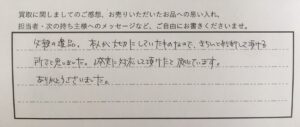 買取に関しましてのご感想、お売りいただいたお品への思い入れ、
担当者・次の持ち主様へのメッセージなど、ご自由にお書きくださいませ。
父親の遺品。あんがい大切にしていたものなので、きちんと判断して頂ける
所でと思いました。誠実に対応して頂けたと感じています。
ありがとうございました。